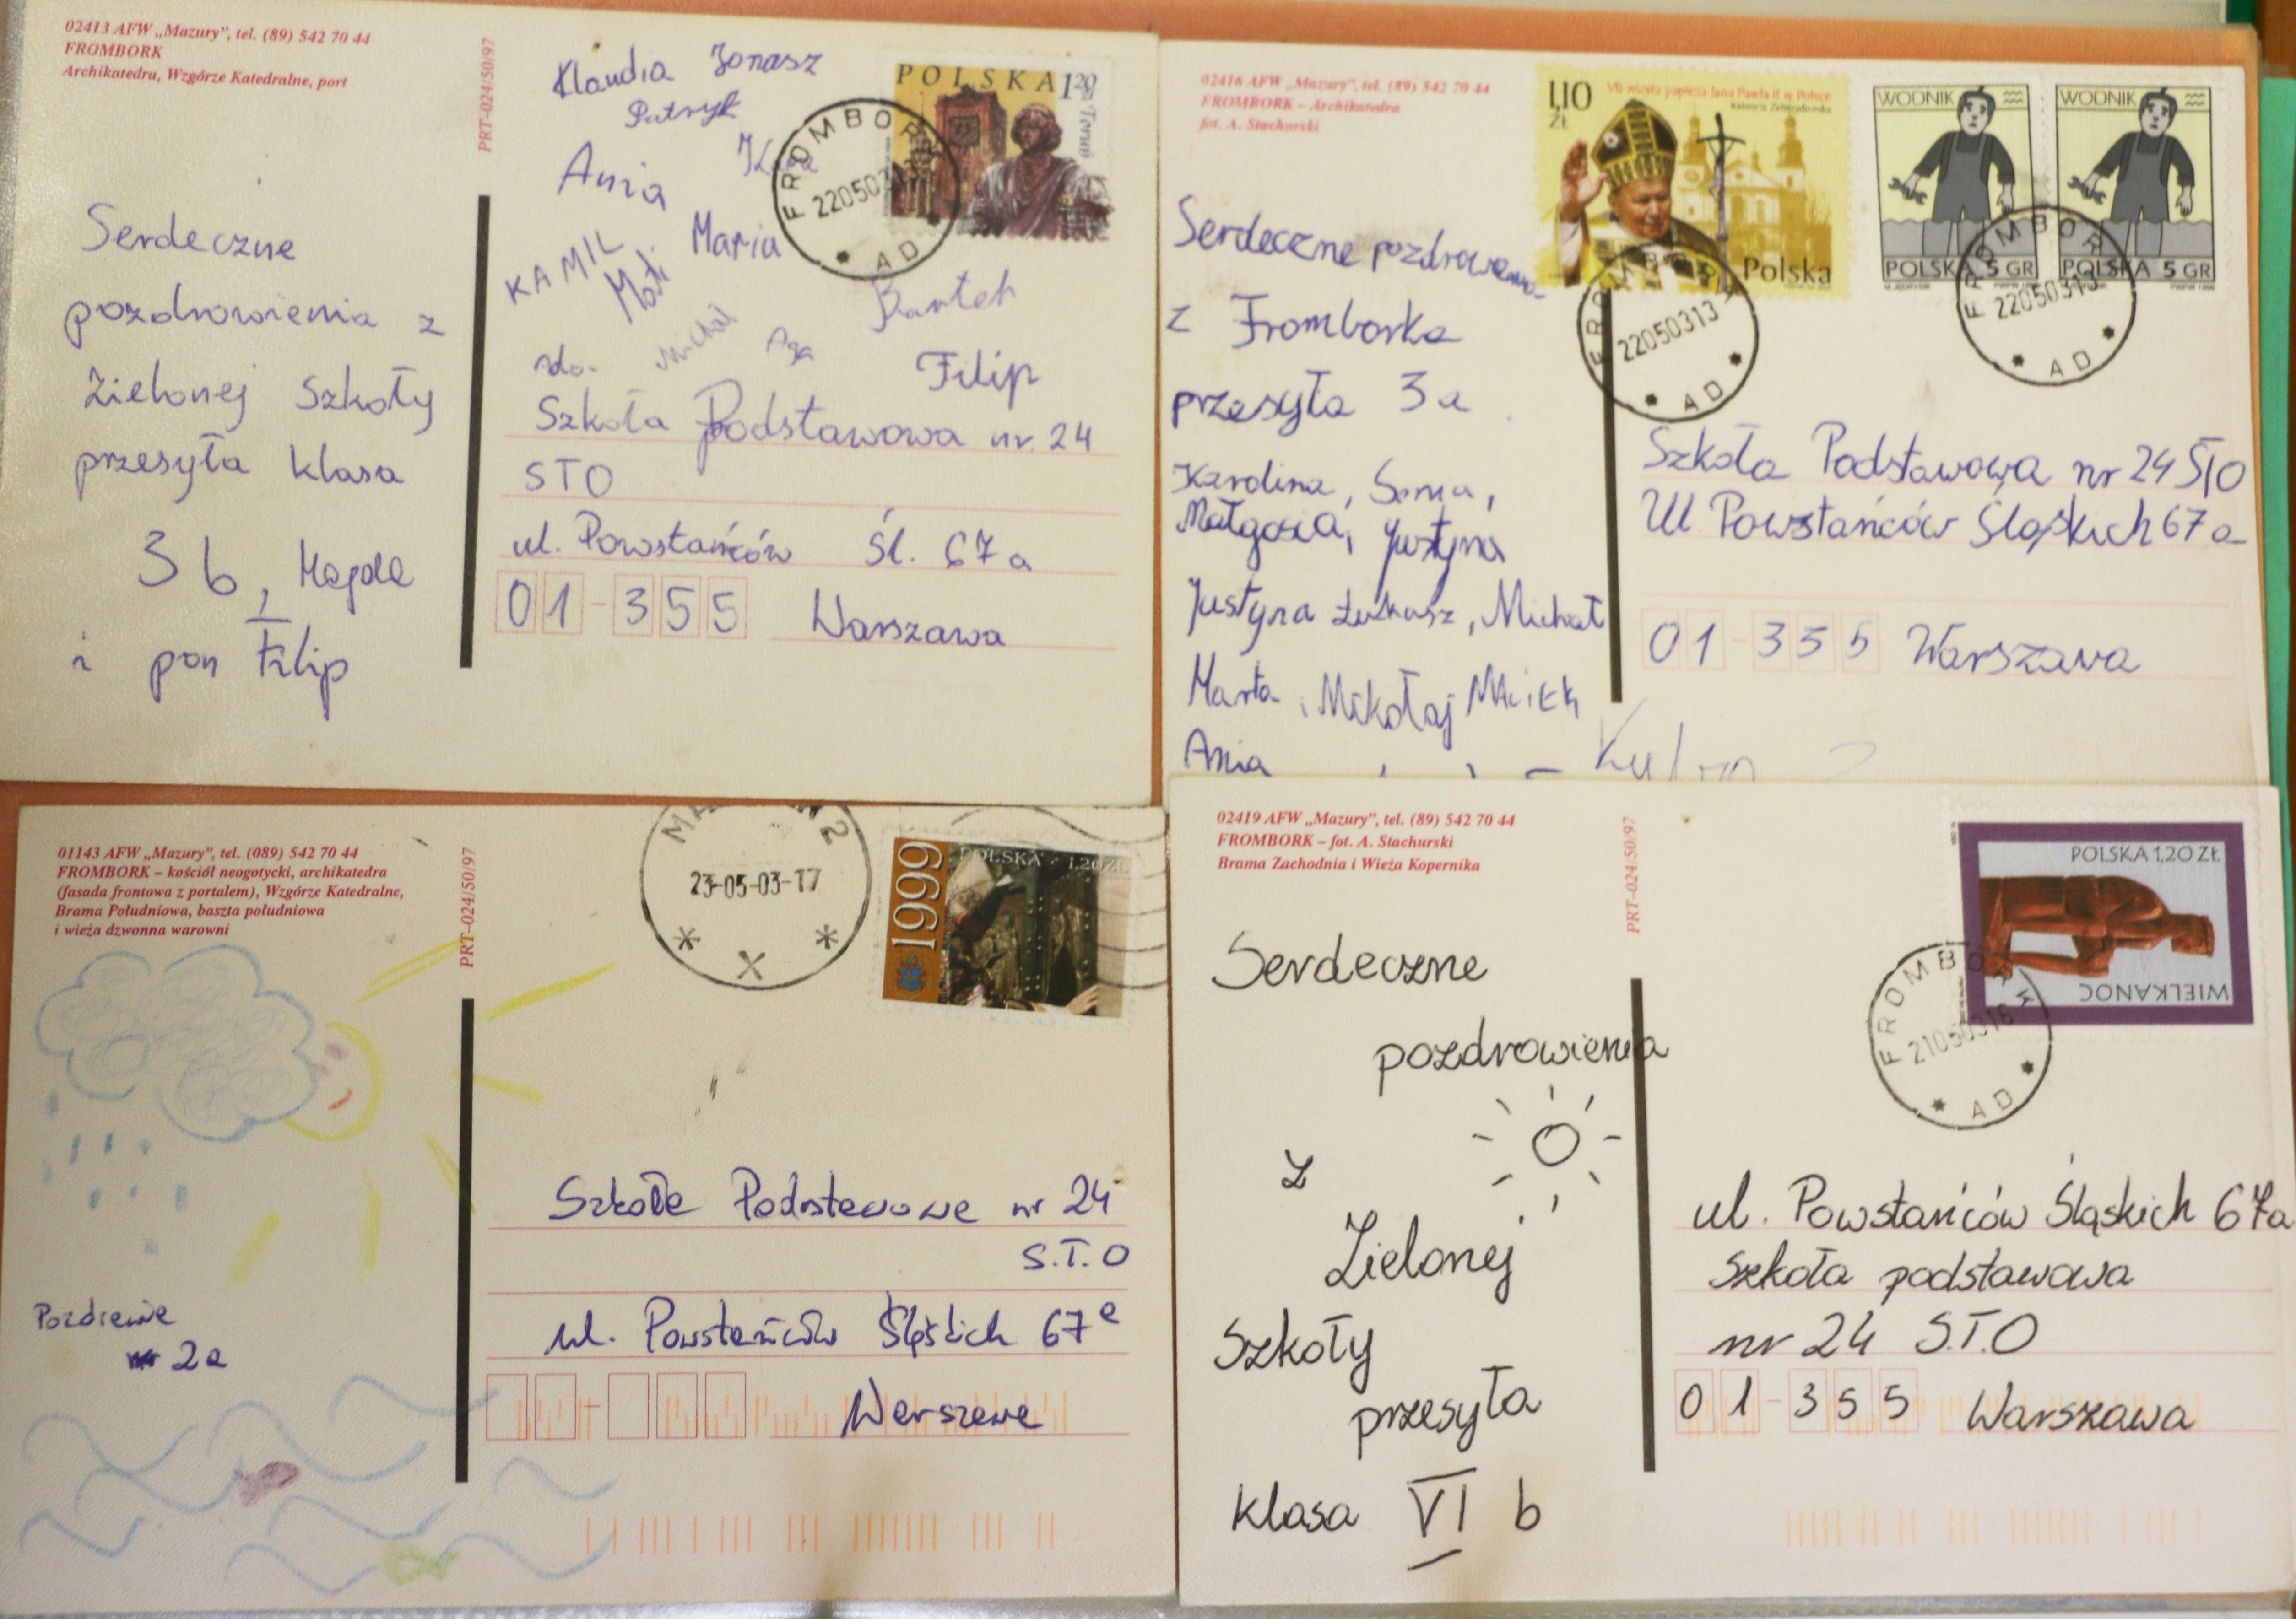 02413 AFW „Mazury”, tel. (89) 542 70 44
FROMBORK
Archikatedra, Wzgórze Katedralne, port
PRT-024/50/97
Serdeczne
pozdrowienia z
Zielonej Szkoły
przesyła klasa
3 b, Magda
i pan Filip
Klaudia Jonasz
Patryk
Ania
KAMIL Mati Maria
Michał Aga Bartek
Filip
do.
Szkoła Podstawowa nr. 24
STO
ul. Powstańców Śl. 67a
01-355 Warszawa
POLSKA 1,20
Toruń
FROMBORK
220503
AD
02416 AFW „Mazury”, tel. (89) 542 70 44
FROMBORK – Archikatedra
fot. A. Stachurski
Serdeczne pozdrowienia
z Fromborka
przesyła 3a
Karolina, Sonia,
Małgosia, Justyna
Justyna Łukasz, Michał
Marta, Mikołaj Maciek
Ania
1,10 ZŁ
VII wizyta papieża Jana Pawła II w Polsce
Kalwaria Zebrzydowska
Polska
WODNIK
POLSKA 5 GR
WODNIK
POLSKA 5 GR
FROMBORK
22050313
AD
FROMBORK
22050313
AD
Szkoła Podstawowa nr 24 STO
Ul Powstańców Śląskich 67a
01-355 Warszawa
01143 AFW „Mazury”, tel. (089) 542 70 44
FROMBORK – kościół neogotycki, archikatedra
(fasada frontowa z portalem), Wzgórze Katedralne,
Brama Południowa, baszta południowa
i wieża dzwonna warowni
PRT-024/50/97
2a
23-05-03-17
1999
POLSKA · 1,20 ZŁ
Szkoła Podstawowa nr 24
S.T.O
ul. Powstańców Śląskich 67a
Warszawa
02419 AFW „Mazury”, tel. (89) 542 70 44
FROMBORK – fot. A. Stachurski
Brama Zachodnia i Wieża Kopernika
PRT-024/50/97
Serdeczne
pozdrowienia
z
Zielonej
Szkoły
przesyła
klasa VI b
POLSKA 1,20 ZŁ
WIELKANOC
FROMBORK
21050316
AD
ul. Powstańców Śląskich 67a
Szkoła podstawowa
nr 24 S.T.O
01-355 Warszawa